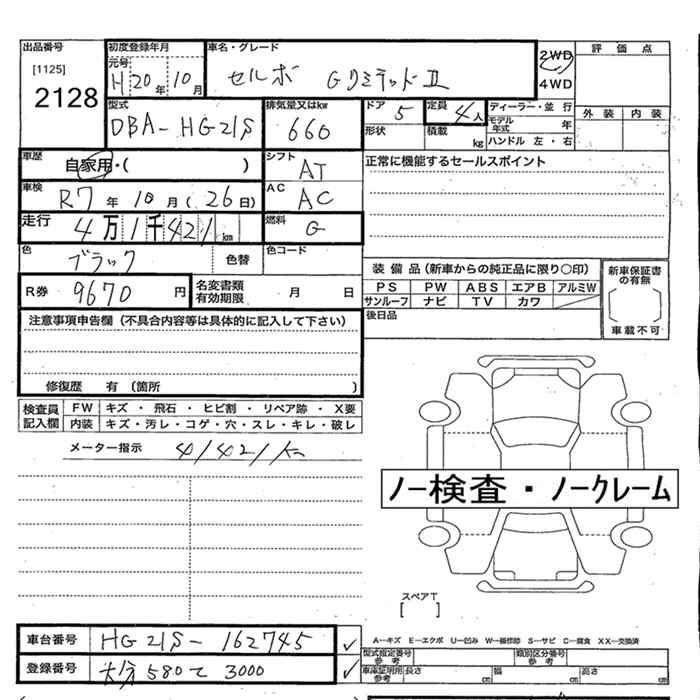 出品番号
[1125]
2128
初度登録年月
元号
H 20 年 10 月
車名・グレード
セルボ Gリミテッド II
2WD
4WD
評価点
外装 内装
型式
DBA-HG21S
排気量又はkw
660
ドア 5
形状
定員 4 人
積載 kg
ディーラー・並行
モデル年式 年
ハンドル 左・右
車歴
自家用・( )
シフト
AT
正常に機能するセールスポイント
車検
R7 年 10 月 ( 26 日)
AC
AC
走行
4 万 1 千 421 km
燃料
G
色
ブラック
色替
色コード
R券
9670 円
名変書類有効期限 月 日
装備品(新車からの純正品に限り〇印)
PS PW ABS エアB アルミW
サンルーフ ナビ TV カワ
新車保証書の有無
車載不可
後日品
注意事項申告欄(不具合内容等は具体的に記入して下さい)
修復歴 有(箇所 )
検査員記入欄
FW キズ・飛石・ヒビ割・リペア跡・X要
内装 キズ・汚レ・コゲ・穴・スレ・キレ・破レ
メーター指示 41421 K
ノー検査・ノークレーム
スペアT
[ ]
車台番号 HG21S-162745
登録番号 大分 580 て 3000
A-キズ E-エクボ U-凹み W-補修跡 S-サビ C-腐食 XX-交換済
型式指定番号 参考
類別区分番号 参考
車庫証明用 参考
長さ cm 幅 cm 高さ cm